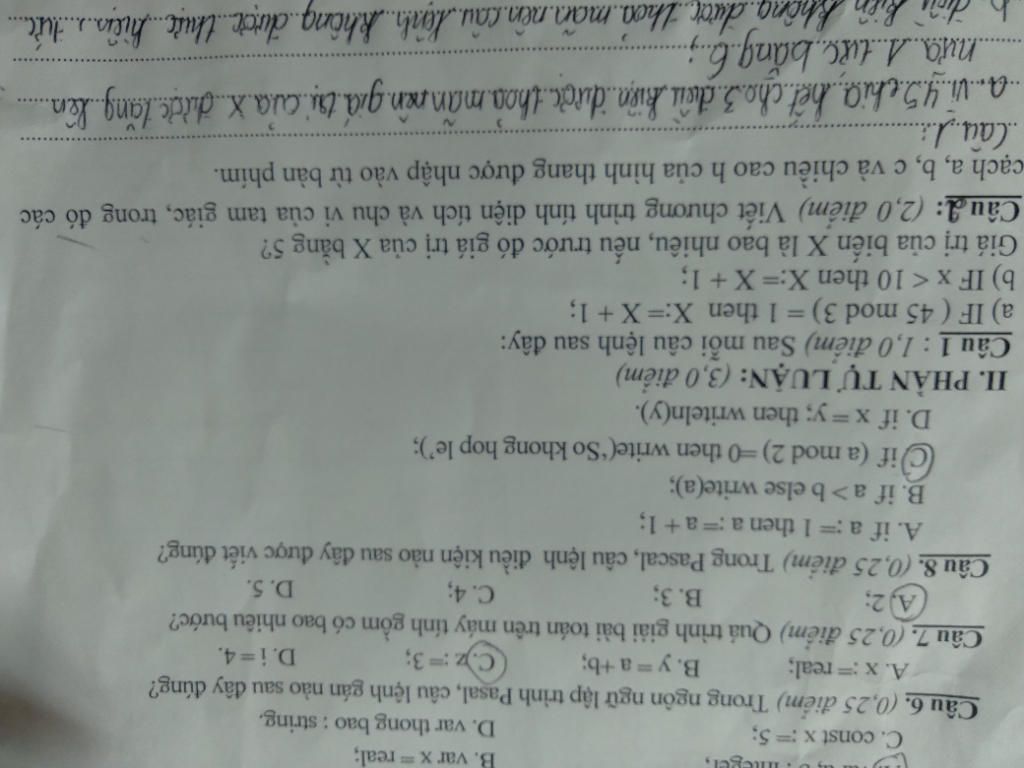 A. var a, b : integer;
B. var x = real;
C. const x := 5;
D. var thong bao : string.
Câu 6. (0,25 điểm) Trong ngôn ngữ lập trình Pasal, câu lệnh gán nào sau đây đúng?
A. x := real; B. y = a +b; C. z := 3; D. i = 4.
Câu 7. (0,25 điểm) Quá trình giải bài toán trên máy tính gồm có bao nhiêu bước?
A 2; B. 3; C. 4; D. 5.
Câu 8. (0,25 điểm) Trong Pascal, câu lệnh điều kiện nào sau đây được viết đúng?
A. if a := 1 then a := a + 1;
B. if a > b else write(a);
C if (a mod 2) =0 then write('So khong hop le');
D. if x = y; then writeln(y).
II. PHẦN TỰ LUẬN: (3,0 điểm)
Câu 1 : 1,0 điểm) Sau mỗi câu lệnh sau đây:
a) IF ( 45 mod 3) = 1 then X:= X + 1;
b) IF x < 10 then X:= X + 1;
Giá trị của biến X là bao nhiêu, nếu trước đó giá trị của X bằng 5?
Câu 2: (2,0 điểm) Viết chương trình tính diện tích và chu vi của tam giác, trong đó các
cạch a, b, c và chiều cao h của hình thang được nhập vào từ bàn phím.
Câu 1:
a. vì 45 chia hết cho 3 điều kiện được thỏa mãn nên giá trị của X được tăng lên
nữa 1 tức bằng 6;
b. điều kiện không được thỏa mãn nên câu lệnh không được thực hiện, tức